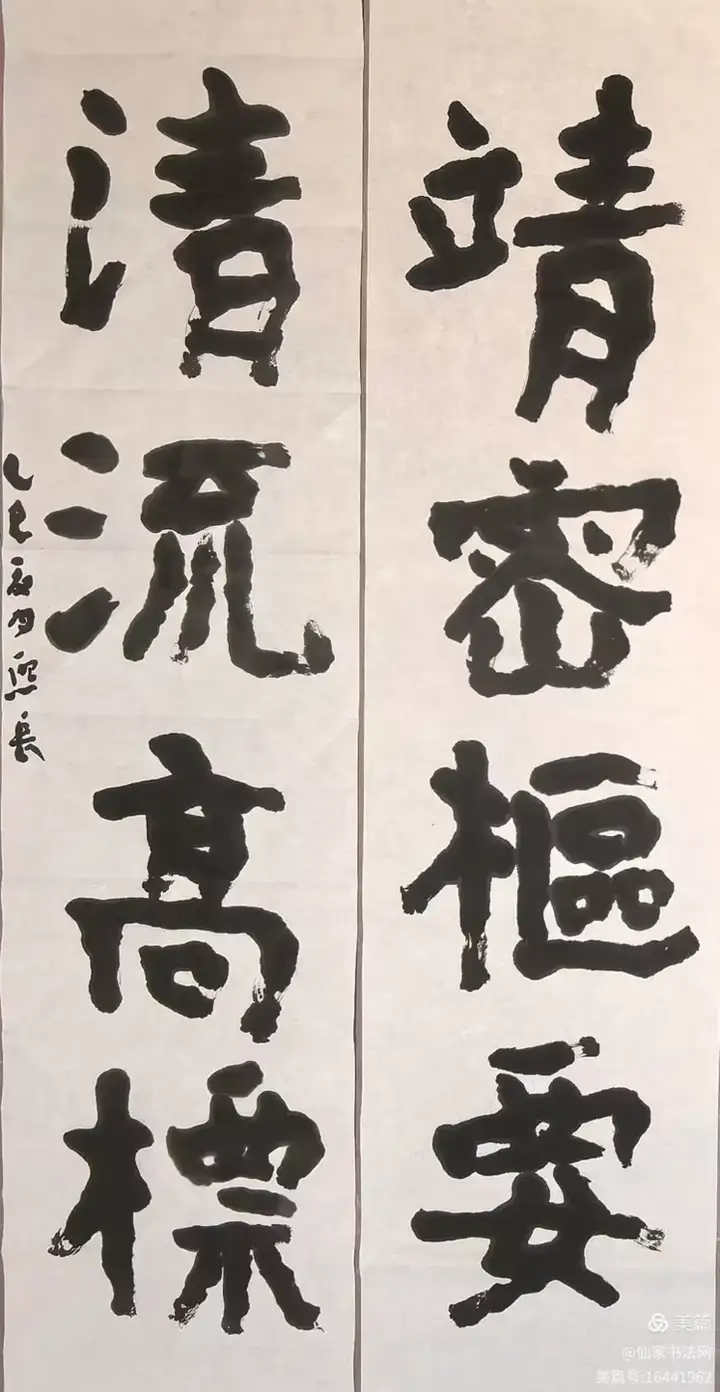 靖密樞要
清流高標
乙巳初夕熙長
美篇
@仙家书法网
美篇号:16441962